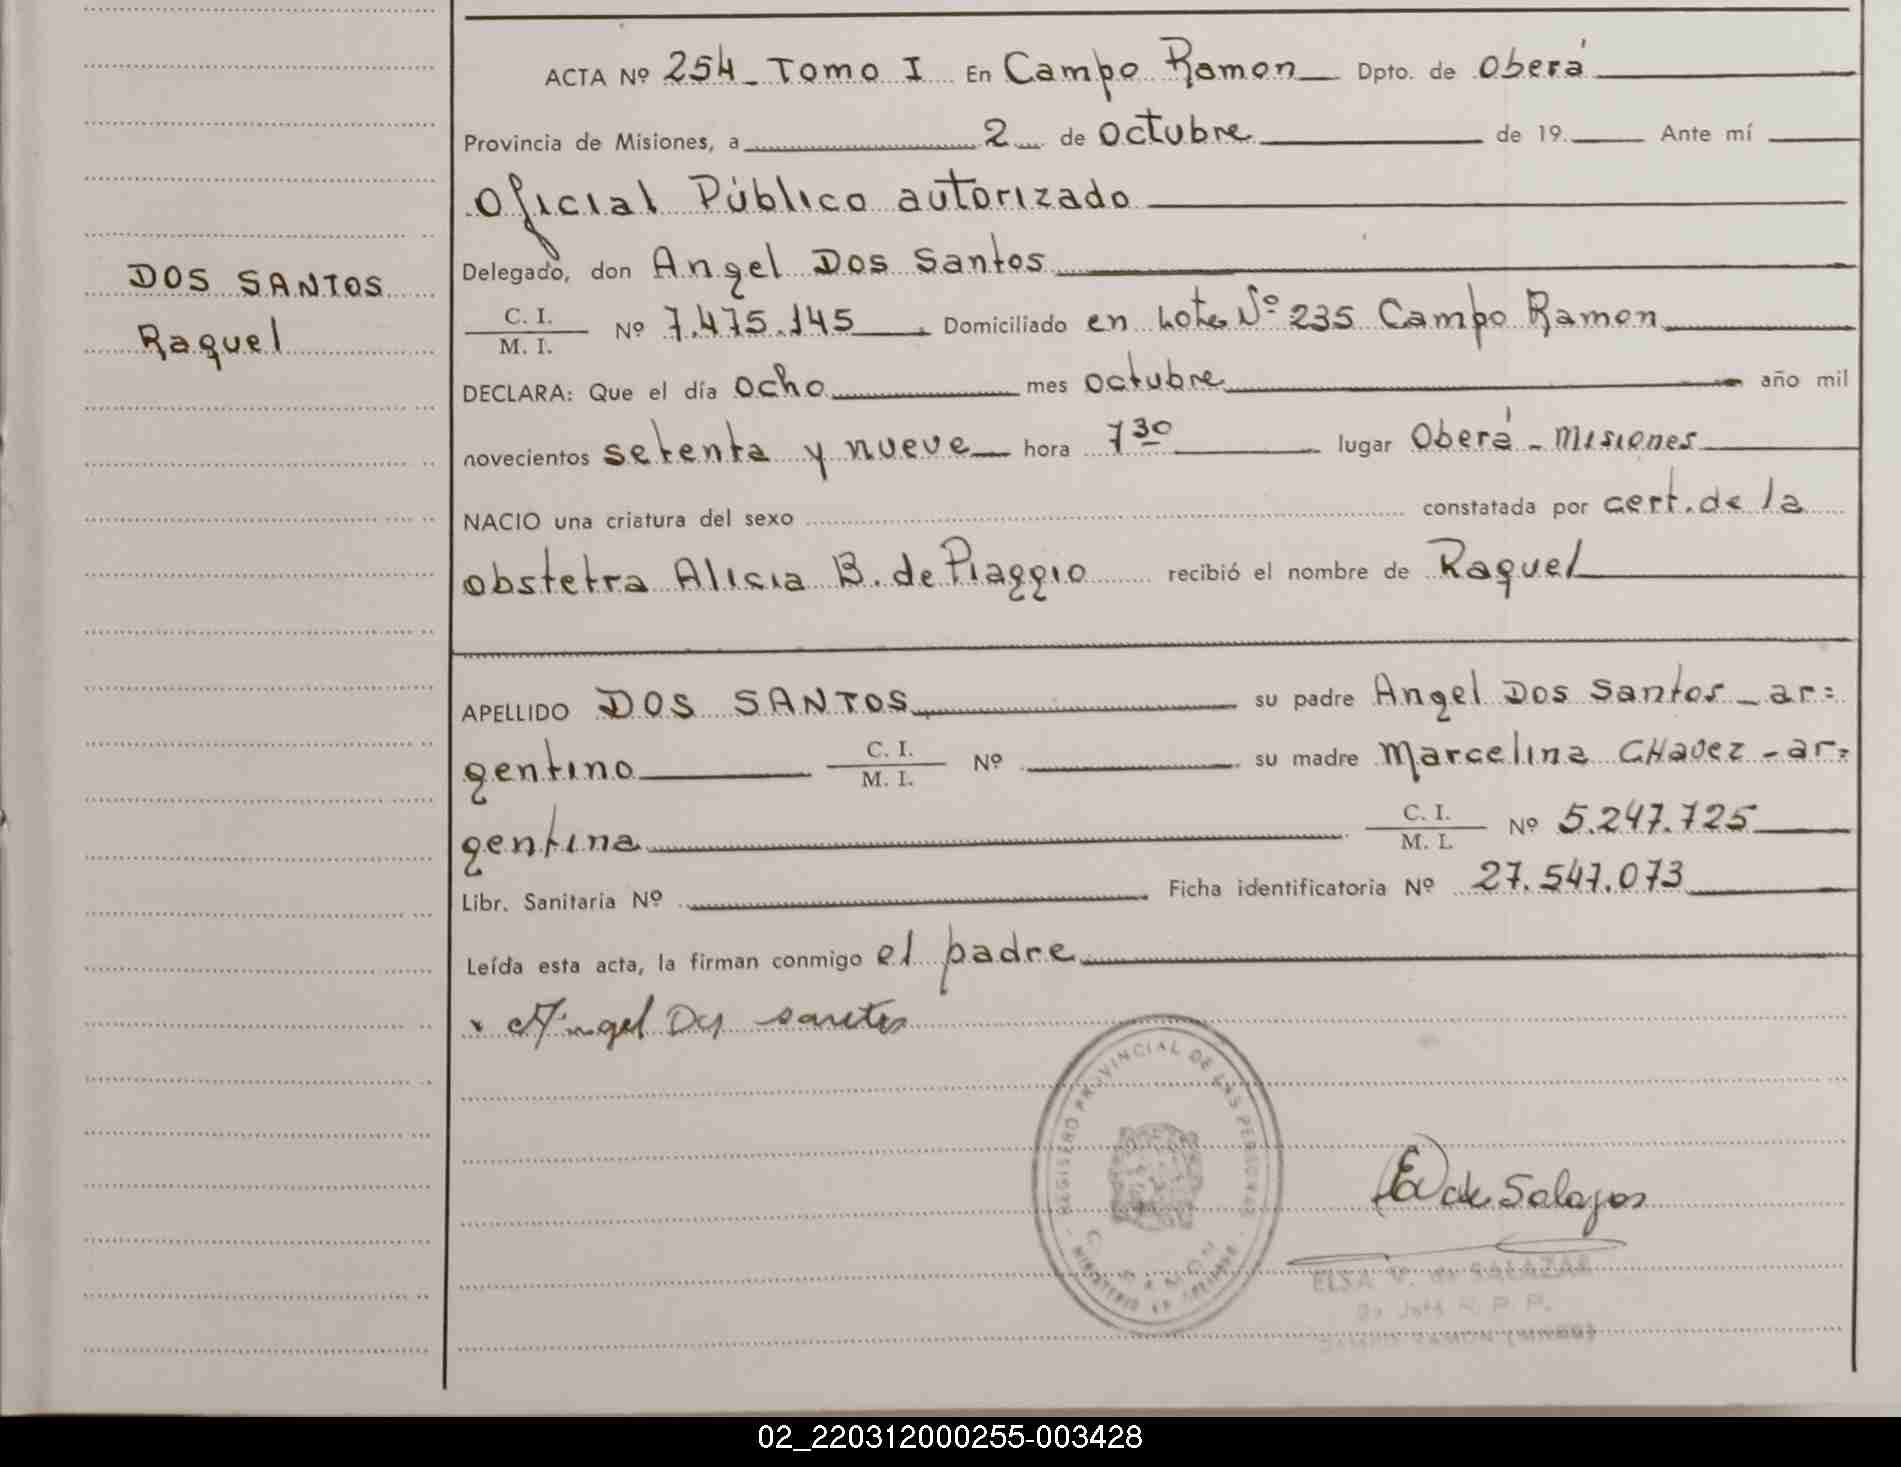 ACTA Nº 254 - Tomo I En Campo Ramon Dpto. de Oberá
Provincia de Misiones, a 2 de octubre de 19 Ante mí
Oficial Público autorizado
Delegado, don Angel Dos Santos
DOS SANTOS
C. I. / M. I. Nº 7.475.145 Domiciliado en Lote Nº 235 Campo Ramon
Raquel
DECLARA: Que el día ocho mes octubre año mil
novecientos setenta y nueve hora 7 30 lugar Oberá - Misiones
NACIO una criatura del sexo constatada por cert. de la
obstetra Alicia B. de Piaggio recibió el nombre de Raquel
APELLIDO DOS SANTOS su padre Angel Dos Santos - ar=
gentino C. I. / M. I. Nº su madre Marcelina CHavez - ar=
gentina C. I. / M. I. Nº 5.247.725
Libr. Sanitaria Nº Ficha identificatoria Nº 27.547.073
Leída esta acta, la firman conmigo el padre
Angel Dos santos
REGISTRO PROVINCIAL DE LAS PERSONAS
MINISTERIO DE GOBIERNO
E V de Salazar
ELSA V. de SALAZAR
CAMPO RAMON (Mnes)
02_220312000255-003428